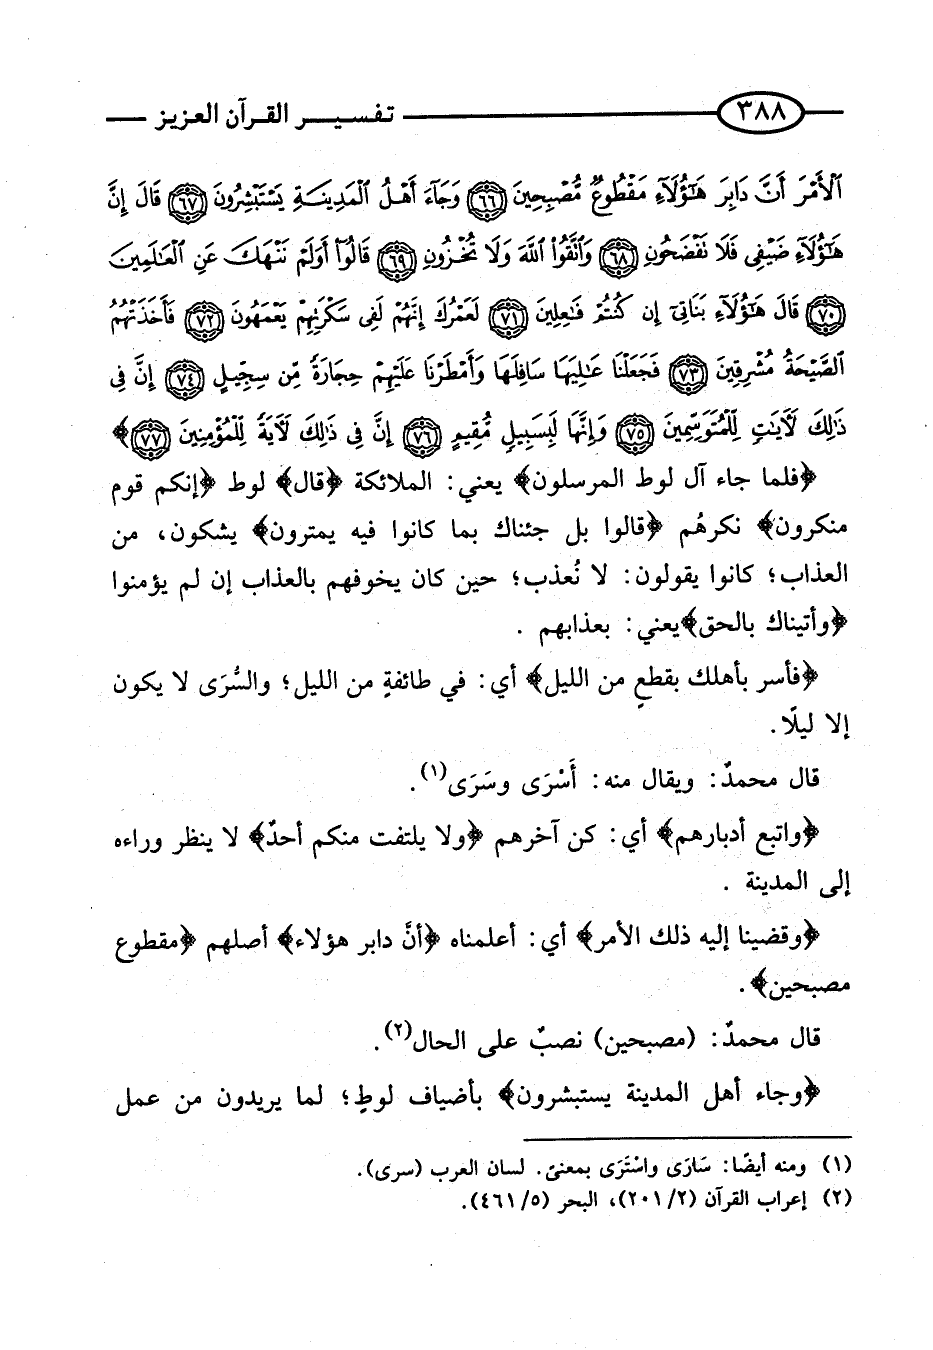 ٣٨٨ تفسير القرآن العزيز
ٱلۡأَمۡرَ أَنَّ دَابِرَ هَٰٓؤُلَآءِ مَقۡطُوعٞ مُّصۡبِحِينَ ٦٦ وَجَآءَ أَهۡلُ ٱلۡمَدِينَةِ يَسۡتَبۡشِرُونَ ٦٧ قَالَ إِنَّ
هَٰٓؤُلَآءِ ضَيۡفِي فَلَا تَفۡضَحُونِ ٦٨ وَٱتَّقُواْ ٱللَّهَ وَلَا تُخۡزُونِ ٦٩ قَالُوٓاْ أَوَلَمۡ نَنۡهَكَ عَنِ ٱلۡعَٰلَمِينَ
٧٠ قَالَ هَٰٓؤُلَآءِ بَنَاتِيٓ إِن كُنتُمۡ فَٰعِلِينَ ٧١ لَعَمۡرُكَ إِنَّهُمۡ لَفِي سَكۡرَتِهِمۡ يَعۡمَهُونَ ٧٢ فَأَخَذَتۡهُمُ
ٱلصَّيۡحَةُ مُشۡرِقِينَ ٧٣ فَجَعَلۡنَا عَٰلِيَهَا سَافِلَهَا وَأَمۡطَرۡنَا عَلَيۡهِمۡ حِجَارَةٗ مِّن سِجِّيلٍ ٧٤ إِنَّ فِي
ذَٰلِكَ لَأٓيَٰتٖ لِّلۡمُتَوَسِّمِينَ ٧٥ وَإِنَّهَا لَبِسَبِيلٖ مُّقِيمٍ ٧٦ إِنَّ فِي ذَٰلِكَ لَأٓيَةٗ لِّلۡمُؤۡمِنِينَ ٧٧﴾
﴿فلما جاء آل لوط المرسلون﴾ يعني: الملائكة ﴿قال﴾ لوط ﴿إنكم قوم
منكرون﴾ نكرهُم ﴿قالوا بل جئناك بما كانوا فيه يمترون﴾ يشكون، من
العذاب؛ كانوا يقولون: لا نُعذب؛ حين كان يخوفهم بالعذاب إن لم يؤمنوا
﴿وأتيناك بالحق﴾يعني: بعذابهم .
﴿فأسر بأهلك بقطعٍ من الليل﴾ أي: في طائفةٍ من الليل؛ والسُّرَى لا يكون
إلا ليلًا.
قال محمدٌ: ويقال منه: أَسْرَى وسَرَى(١).
﴿واتبع أدبارهم﴾ أي: كن آخرهم ﴿ولا يلتفت منكم أحدٌ﴾ لا ينظر وراءه
إلى المدينة .
﴿وقضينا إليه ذلك الأمر﴾ أي: أعلمناه ﴿أنَّ دابر هؤلاء﴾ أصلهم ﴿مقطوع
مصبحين﴾.
قال محمدٌ: (مصبحين) نصبٌ على الحال(٢).
﴿وجاء أهل المدينة يستبشرون﴾ بأضياف لوطٍ؛ لما يريدون من عمل
(١) ومنه أيضًا: سَارَى واسْتَرَى بمعنىً. لسان العرب (سرى).
(٢) إعراب القرآن (٢٠١/٢)، البحر (٤٦١/٥).